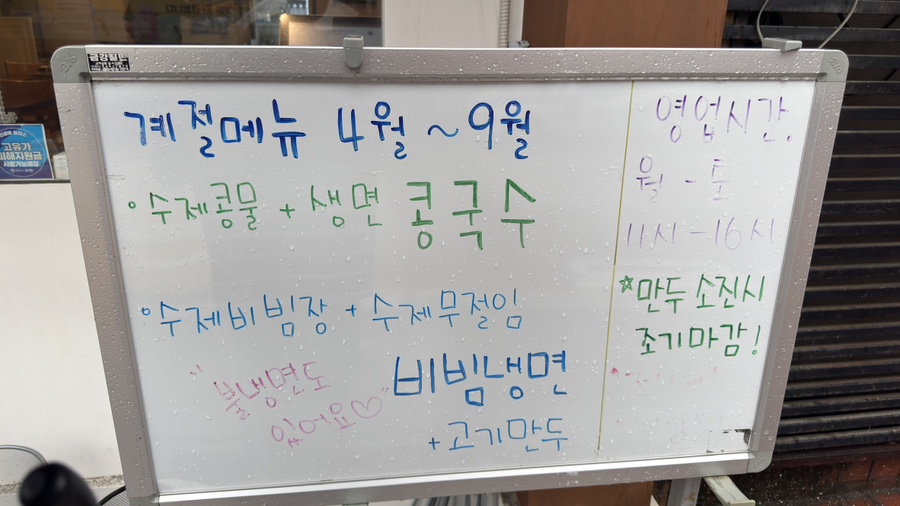 계절메뉴 4월 ~ 9월
° 수제콩물 + 생면 콩국수
° 수제비빔장 + 수제무절임
비빔냉면
+ 고기만두
"물냉면도
있어요♡"
영업시간!
월 - 토
11시 - 16시
☆만두 소진시
조기마감!
고유가
피해지원금